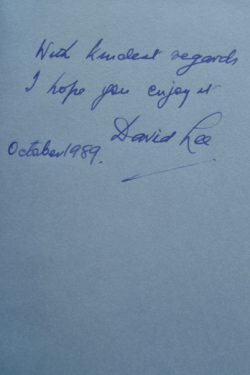 With kindest regards
I hope you enjoy it
David Lee
October 1989.